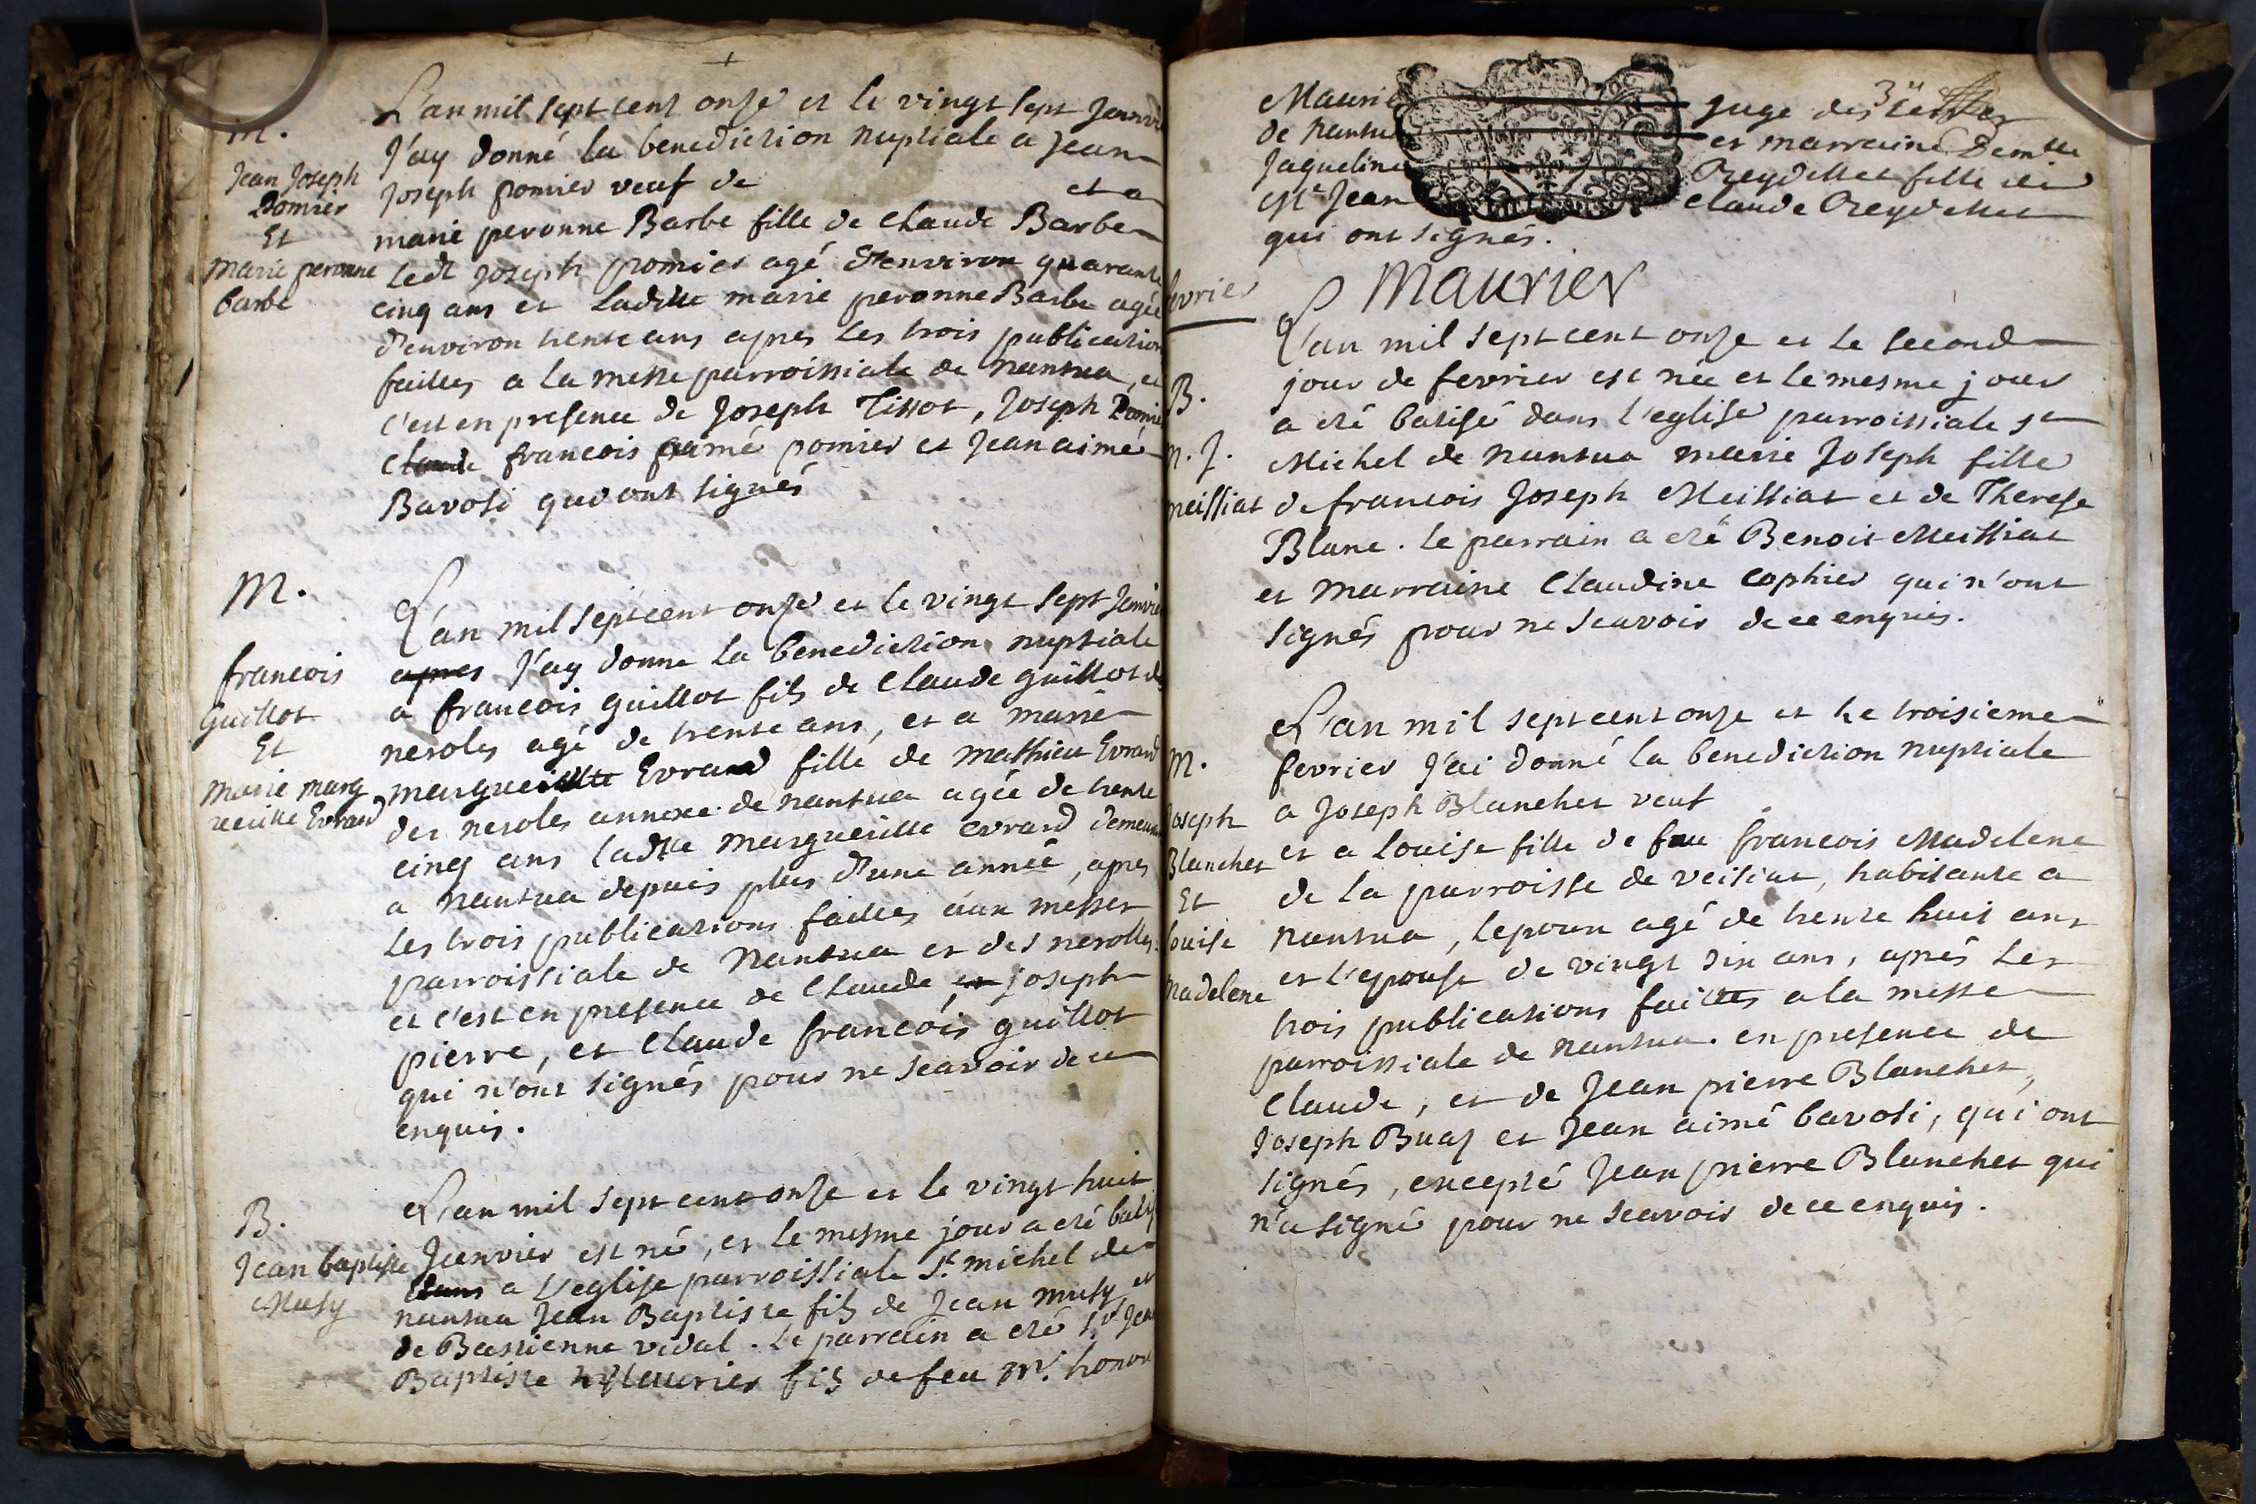 M.
Jean Joseph
Pomier
Et
Marie peronne
barbe
L'an mil sept cent onze et le vingt sept Janvi
J'ay donné la benediction nuptiale a Jean
Joseph pomier veuf de et a
marie peronne Barbe fille de Claude Barbe
ledt Joseph pomier agé d'environ quarante
cinq ans et laditte marie peronne Barbe agée
d'environ trente ans apres les trois publication
faittes a la messe parroissiale de nantua, et
c'est en presence de Joseph Tissot, Joseph Pomie
Claude francois aimé pomier et Jean aimé
Bavosi qui ont signés
M.
francois
Guillot
Et
Marie marg
ueritte Evrard
L'an mil sept cent onze et le vingt sept Janvie
apres J'ay donne la benediction nuptiale
a francois guillot fils de Claude guillot des
neroles agé de trente ans, et a marie
margueritte Evrard fille de mathieu Evrard
des neroles annexe de nantua agée de trente
cinq ans ladtte margueritte evrard demeura
a nantua depuis plus d'une année, apres
les trois publications faittes aux messes
parroissiale de Nantua et des nerolles
et c'est en presence de Claude et joseph
pierre, et Claude francois guillot
qui n'ont signés pour ne scavoir de ce
enquis.
B.
Jean baptiste
Musy
L'an mil sept cent onze et le vingt huit
Janvier est né, et le mesme jour a eté batis
dans a l'eglise parroissiale St michel de
nantua Jean Baptiste fils de Jean musy et
de Bastienne vidal. Le parrain a eté Sr Jea
Baptiste Maurier fils de feu Mr. honor
Mauri juge des terres
de nantu et marraine Demlle
Jaqueline Reydellet fille de
Mr Jean Claude Reydellet
qui ont signés.
Maurier
fevrier
B.
m. J.
meissiat
L'an mil sept cent onze et le second
jour de fevrier est née et le mesme jour
a eté batisé dans l'eglise parroissiale st
Michel de nantua marie Joseph fille
de francois Joseph Meissiat et de Therese
Blanc. le parrain a eté Benoit Meissiat
et marraine Claudine cophier qui n'ont
signés pour ne scavoir de ce enquis.
M.
Joseph
Blanchet
Et
louise
madelene
L'an mil sept cent onze et le troisieme
fevrier J'ai donné la benediction nuptiale
a Joseph Blanchet veuf
et a louise fille de feu francois Madelene
de la parroisse de veisiat, habitante a
nantua, lepoux agé de trente huit ans
et l'epouse de vingt six ans, aprés les
trois publications faittes a la messe
parroissiale de nantua. en presence de
Claude, et de Jean pierre Blanchet,
Joseph Buaz et Jean aimé bavosi, qui ont
signés, excepté Jean pierre Blanchet qui
n'a signé pour ne scavoir de ce enquis.